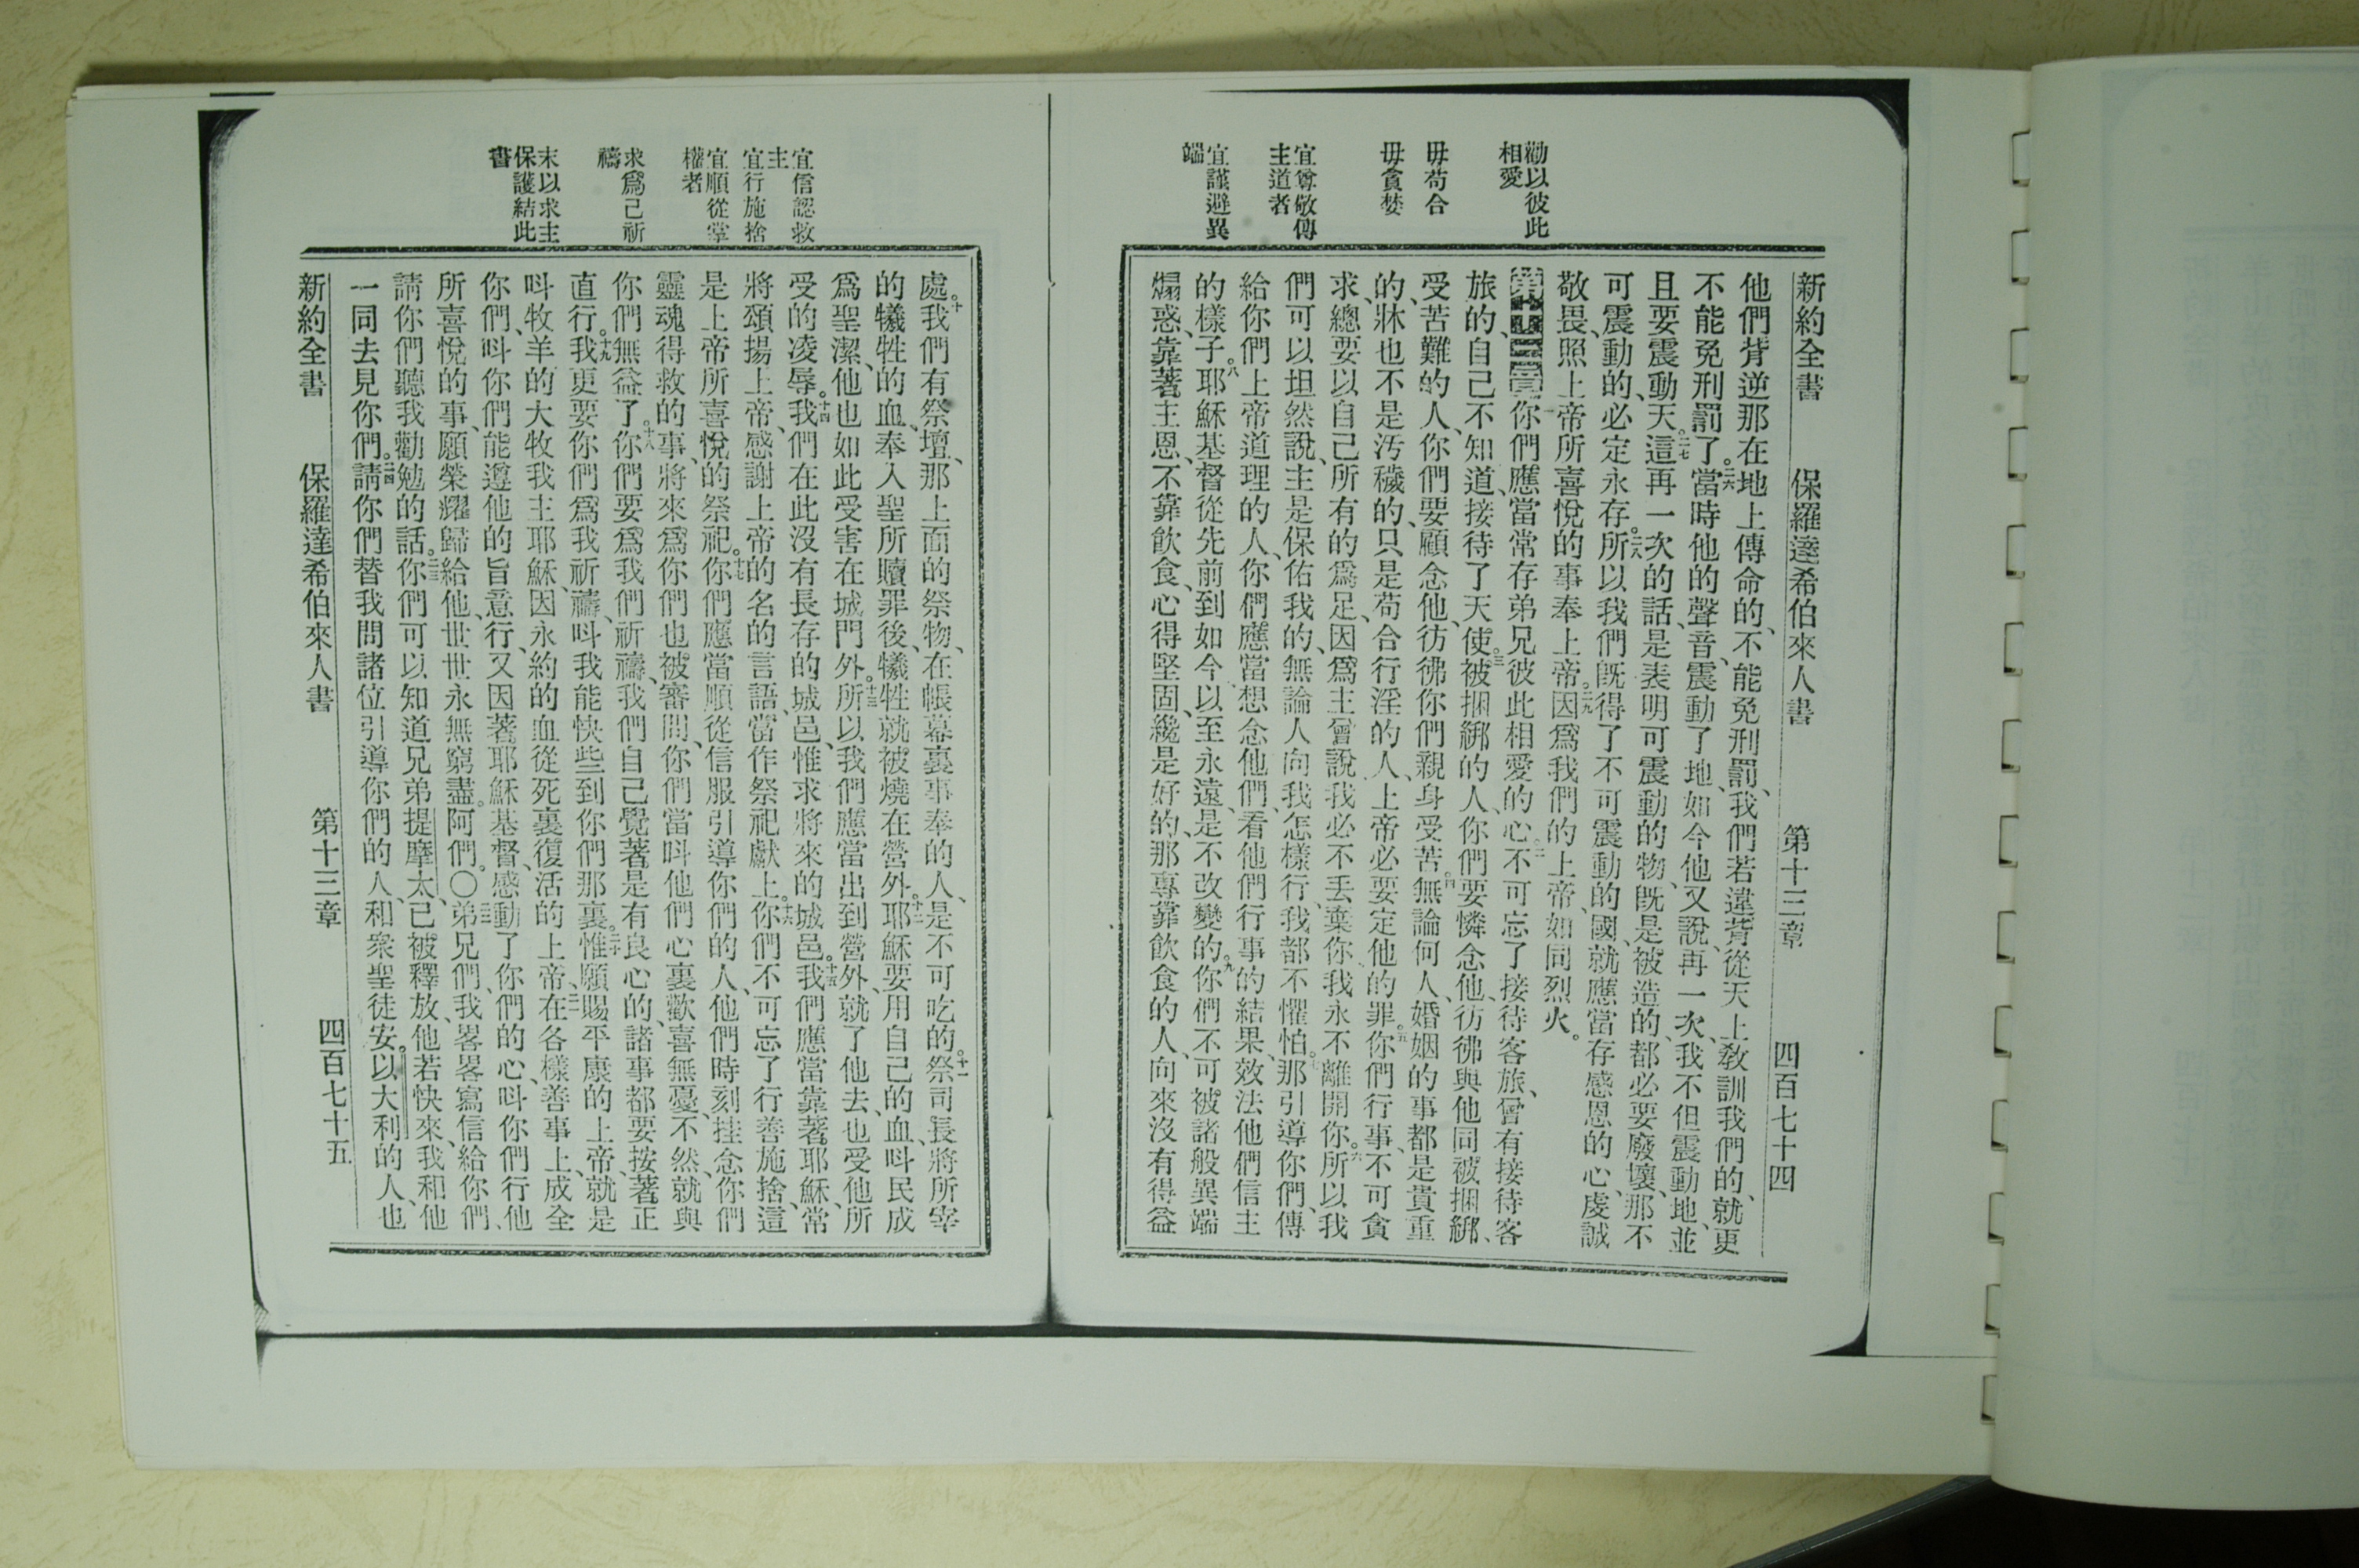 勸以彼此
相愛
毋苟合
毋貪婪
宜尊敬傳
主道者
宜謹避異
端
新約全書 保羅達希伯來人書 第十三章 四百七十四
他們背逆那在地上傳命的、不能免刑罰、我們若違背從天上敎訓我們的、就更
不能免刑罰了。二六當時他的聲音、震動了地、如今他又說、再一次、我不但震動地、並
且要震動天。二七這再一次的話、是表明可震動的物、旣是被造的、都必要廢壞、那不
可震動的、必定永存。二八所以我們旣得了不可震動的國、就應當存感恩的心、虔誠
敬畏、照上帝所喜悅的事奉上帝。二九因爲我們的上帝、如同烈火。
第十三章你們應當常存弟兄彼此相愛的心。二不可忘了接待客旅、曾有接待客
旅的、自己不知道、接待了天使。三被捆綁的人、你們要憐念他、彷彿與他同被捆綁、
受苦難的人、你們要顧念他、彷彿你們親身受苦。四無論何人、婚姻的事都是貴重
的、牀也不是汚穢的、只是苟合行淫的人、上帝必要定他的罪。五你們行事、不可貪
求、總要以自己所有的爲足、因爲主曾說、我必不丟棄你、我永不離開你。六所以我
們可以坦然說、主是保佑我的、無論人向我怎樣行、我都不懼怕。七那引導你們、傳
給你們上帝道理的人、你們應當想念他們、看他們行事的結果、效法他們信主
的樣子。八耶穌基督從先前到如今、以至永遠、是不改變的。九你們不可被諸般異端
煽惑、靠著主恩、不靠飲食、心得堅固、纔是好的、那專靠飲食的人、向來沒有得益
宜信認救
主
宜行施捨
宜順從掌
權者
求爲己祈
禱
末以求主
保護結此
書
處。十我們有祭壇、那上面的祭物、在帳幕裏事奉的人、是不可吃的。十一祭司長將所宰
的犧牲的血、奉入聖所贖罪後、犧牲就被燒在營外。十二耶穌要用自己的血、呌民成
爲聖潔、他也如此受害在城門外。十三所以我們應當出到營外、就了他去、也受他所
受的凌辱。十四我們在此沒有長存的城邑、惟求將來的城邑。十五我們應當靠著耶穌、常
將頌揚上帝、感謝上帝的名的言語、當作祭祀獻上。十六你們不可忘了行善施捨、這
是上帝所喜悅的祭祀。十七你們應當順從信服引導你們的人、他們時刻挂念你們
靈魂得救的事、將來爲你們也被審問、你們當呌他們心裏歡喜無憂、不然、就與
你們無益了。十八你們要爲我們祈禱、我們自己覺著是有良心的、諸事都要按著正
直行。十九我更要你們爲我祈禱、呌我能快些到你們那裏。二十惟願賜平康的上帝、就是
呌牧羊的大牧我主耶穌、因永約的血從死裏復活的上帝、二一在各樣善事上、成全
你們、呌你們能遵他的旨意行、又因著耶穌基督、感動了你們的心、呌你們行他
所喜悅的事、願榮耀歸給他、世世永無窮盡。阿們。〇二二弟兄們、我畧畧寫信給你們、
請你們聽我勸勉的話。二三你們可以知道兄弟提摩太、已被釋放、他若快來、我和他
一同去見你們。二四請你們替我問諸位引導你們的人、和衆聖徒安。以大利的人、也
新約全書 保羅達希伯來人書 第十三章 四百七十五